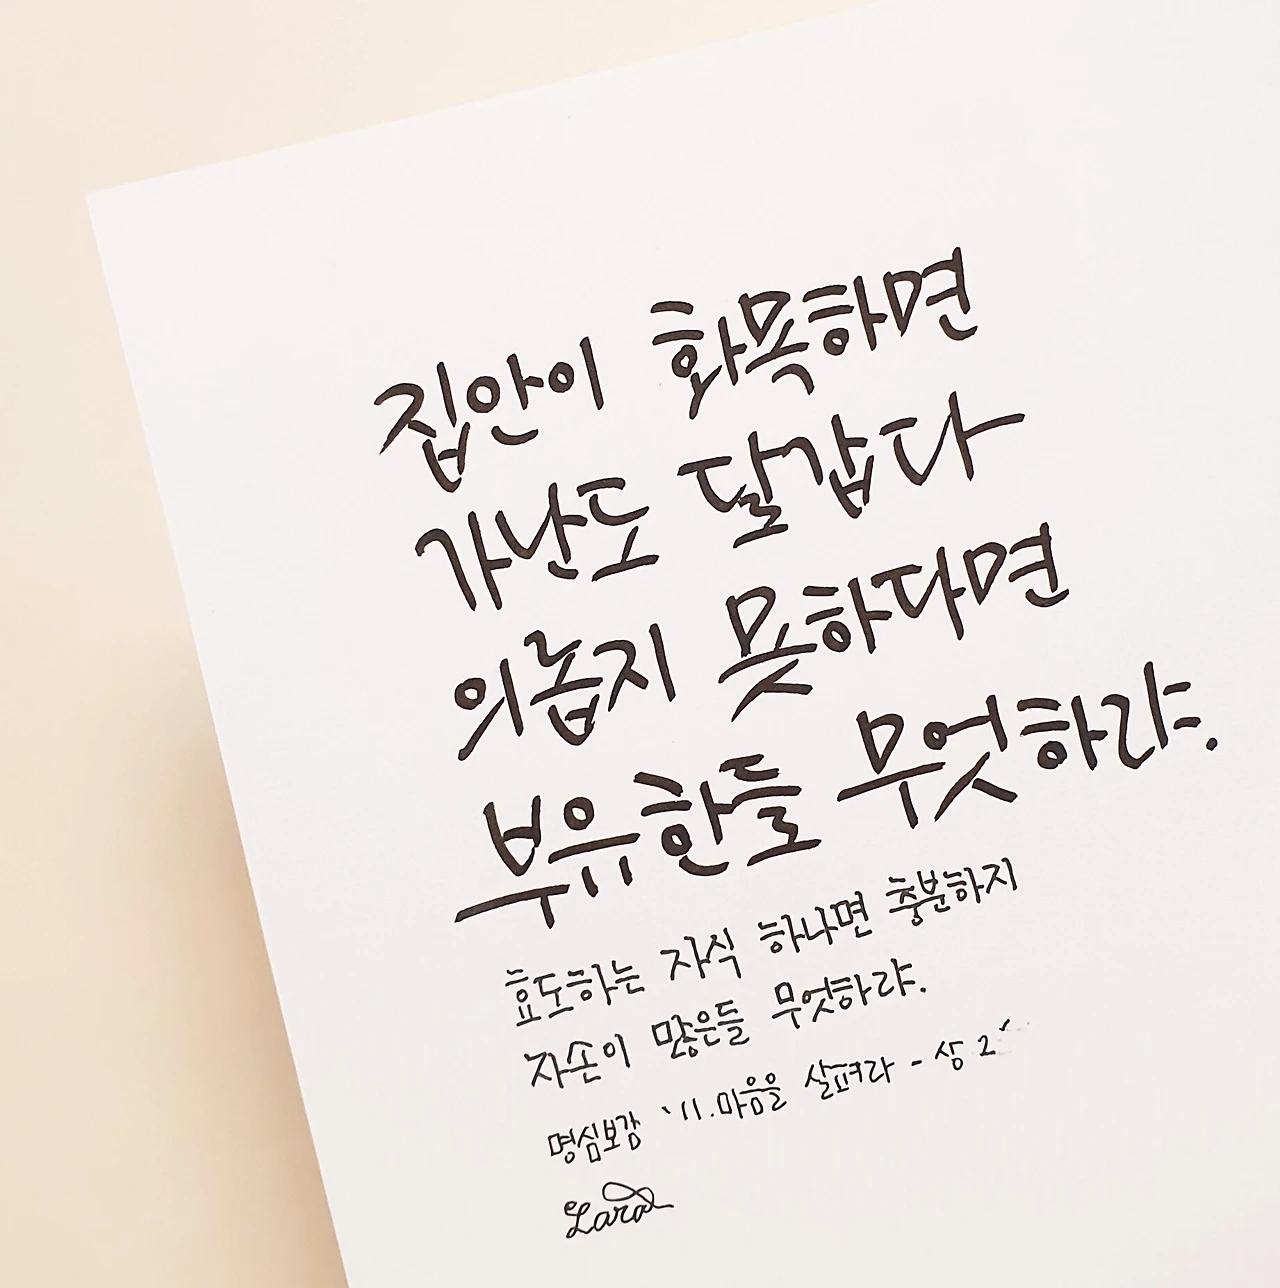 집안이 화목하면
가난도 달갑다
의롭지 못하다면
부유한들 무엇하랴.
효도하는 자식 하나면 충분하지
자손이 많은들 무엇하랴.
명심보감 '11.마음을 살펴라 - 상 2'
Lara